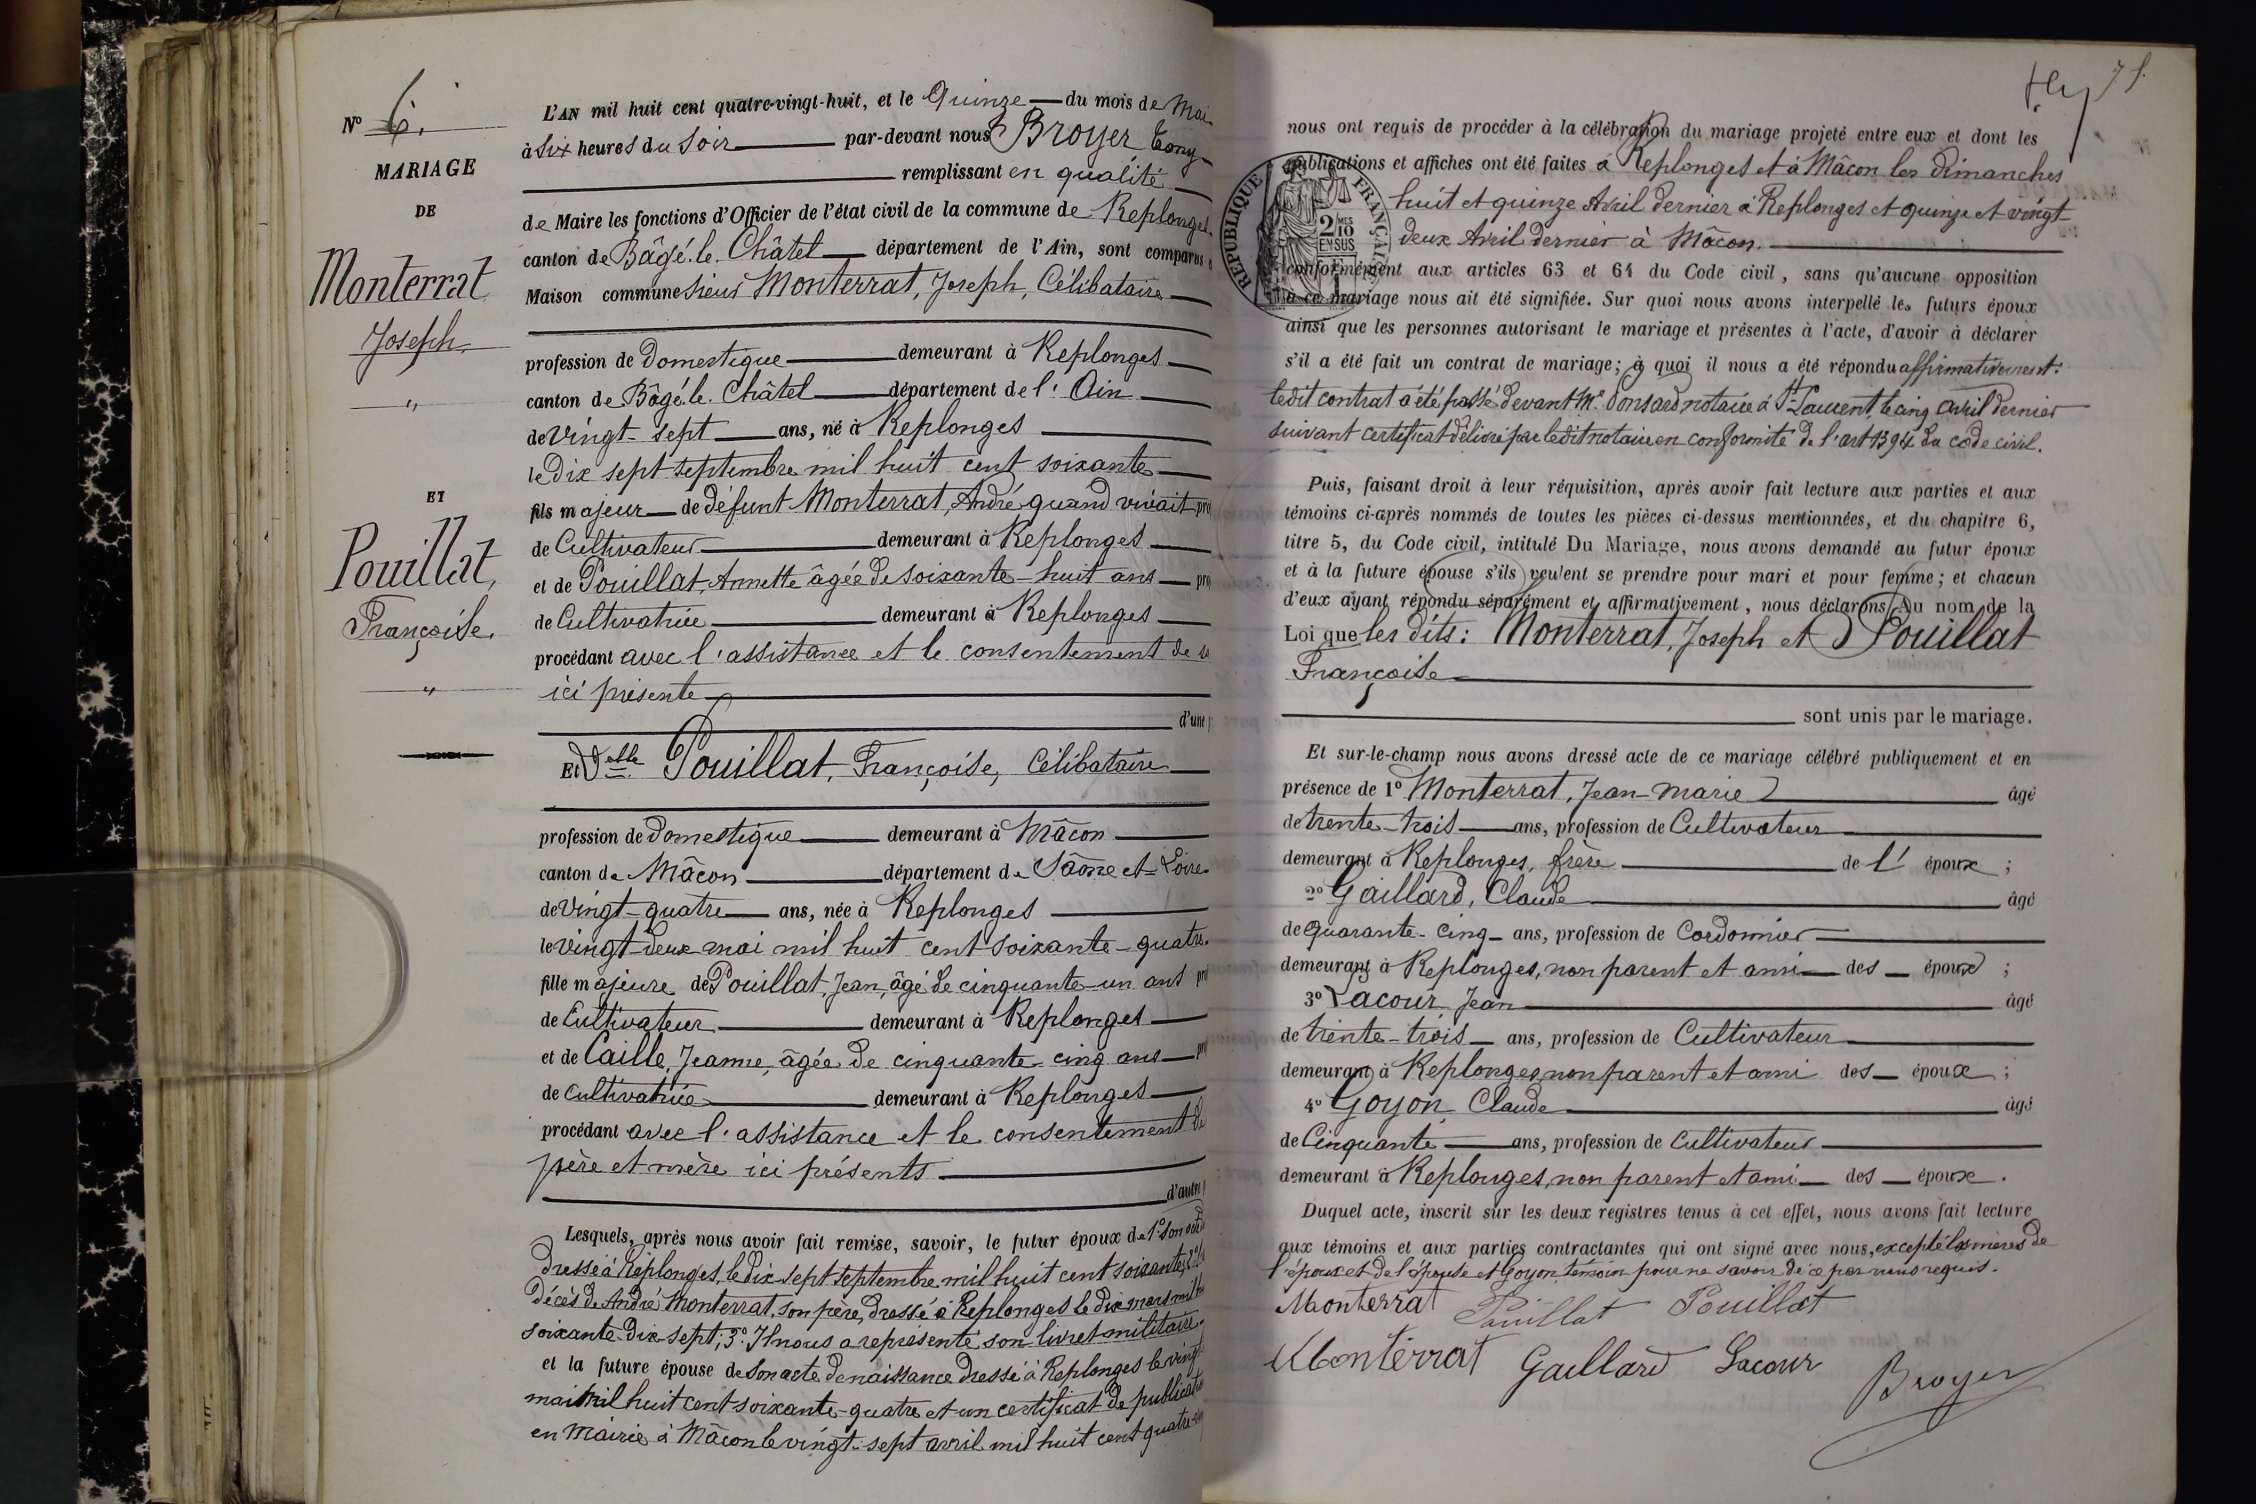 Nº 6.
MARIAGE
DE
Monterrat
Joseph.
"
ET
Pouillat,
Françoise.
"
L'AN mil huit cent quatre-vingt-huit, et le Quinze du mois de Mai
à six heures du soir par-devant nous Broyer Tony
remplissant en qualité
de Maire les fonctions d'Officier de l'état civil de la commune de Replonges
canton de Bâgé-le-Châtel département de l'Ain, sont comparus
Maison commune sieur Monterrat, Joseph, Célibataire
profession de Domestique demeurant à Replonges
canton de Bâgé-le-Châtel département de l'Ain
de vingt-sept ans, né à Replonges
le dix sept septembre mil huit cent soixante
fils majeur de défunt Monterrat, André quand vivait
de Cultivateur demeurant à Replonges
et de Pouillat, Annette âgée de soixante-huit ans
de Cultivatrice demeurant à Replonges
procédant avec l'assistance et le consentement de
ici présente
d'une
Et Delle Pouillat, Françoise, Célibataire
profession de Domestique demeurant à Mâcon
canton de Mâcon département de Saône et-Loire
de vingt-quatre ans, née à Replonges
le vingt-deux mai mil huit cent soixante-quatre
fille majeure de Pouillat, Jean, âgé de cinquante-un ans
de Cultivateur demeurant à Replonges
et de Caille, Jeanne, âgée de cinquante-cinq ans
de cultivatrice demeurant à Replonges
procédant avec l'assistance et le consentement de
père et mère ici présents
d'autre
Lesquels, après nous avoir fait remise, savoir, le futur époux de 1º son acte
dressé à Replonges, le dix-sept septembre mil huit cent soixante,
décès de André Monterrat, son père, dressé à Replonges le dix mars mil
soixante-dix-sept; 3º Il nous a représenté son livret militaire
et la future épouse de son acte de naissance dressé à Replonges le vingt
mai mil huit cent soixante-quatre et un certificat de publication
en Mairie à Mâcon le vingt-sept avril mil huit cent quatre
nous ont requis de procéder à la célébration du mariage projeté entre eux et dont les
publications et affiches ont été faites à Replonges et à Mâcon les Dimanches
huit et quinze Avril dernier à Replonges et quinze et vingt-
deux Avril dernier à Mâcon.
RÉPUBLIQUE FRANÇAISE
2 MES
10
EN SUS
conformément aux articles 63 et 64 du Code civil, sans qu'aucune opposition
à ce mariage nous ait été signifiée. Sur quoi nous avons interpellé les futurs époux
ainsi que les personnes autorisant le mariage et présentes à l'acte, d'avoir à déclarer
s'il a été fait un contrat de mariage; à quoi il nous a été répondu affirmativement:
ledit contrat a été passé devant Me Ponsard notaire à St-Laurent, le cinq avril dernier
suivant certificat délivré par ledit notaire en conformité de l'art 1394 du code civil.
Puis, faisant droit à leur réquisition, après avoir fait lecture aux parties et aux
témoins ci-après nommés de toutes les pièces ci-dessus mentionnées, et du chapitre 6,
titre 5, du Code civil, intitulé Du Mariage, nous avons demandé au futur époux
et à la future épouse s'ils veulent se prendre pour mari et pour femme; et chacun
d'eux ayant répondu séparément et affirmativement, nous déclarons Au nom de la
Loi que les dits: Monterrat, Joseph et Pouillat
Françoise
sont unis par le mariage.
Et sur-le-champ nous avons dressé acte de ce mariage célébré publiquement et en
présence de 1º Monterrat, Jean Marie âgé
de trente-trois ans, profession de Cultivateur
demeurant à Replonges, frère de l' époux;
2º Gaillard, Claude âgé
de quarante-cinq ans, profession de Cordonnier
demeurant à Replonges, non parent et ami des époux;
3º Lacour, Jean âgé
de trente-trois ans, profession de Cultivateur
demeurant à Replonges, non parent et ami des époux;
4º Goyon, Claude âgé
de Cinquante ans, profession de Cultivateur
demeurant à Replonges, non parent et ami des époux.
Duquel acte, inscrit sur les deux registres tenus à cet effet, nous avons fait lecture
aux témoins et aux parties contractantes qui ont signé avec nous, excepté les mères de
l'époux et de l'épouse et Goyon, témoin pour ne savoir de ce par nous requis.
Monterrat Pouillat Pouillat
Monterrat Gaillard Lacour Broyer